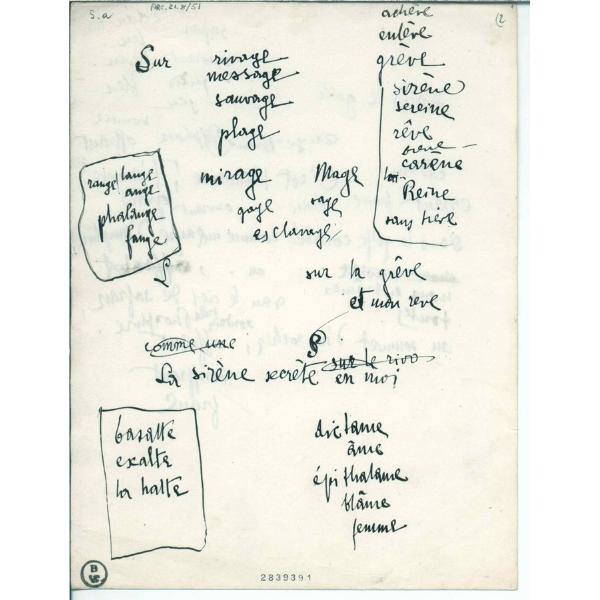 S.a
(2
achève
enlève
Sur rivage grève
message sirène
sauvage sereine
plage rêve
carène
mirage Mage Reine
gage rage sans trêve
esclavage
range lange
ange
phalange
fange
sur la grève
et mon reve
comme une
sur le rivo
La sirène secrète en moi
basalte
exalte
la halte
dictame
âme
épithalame
blâme
femme
2839391